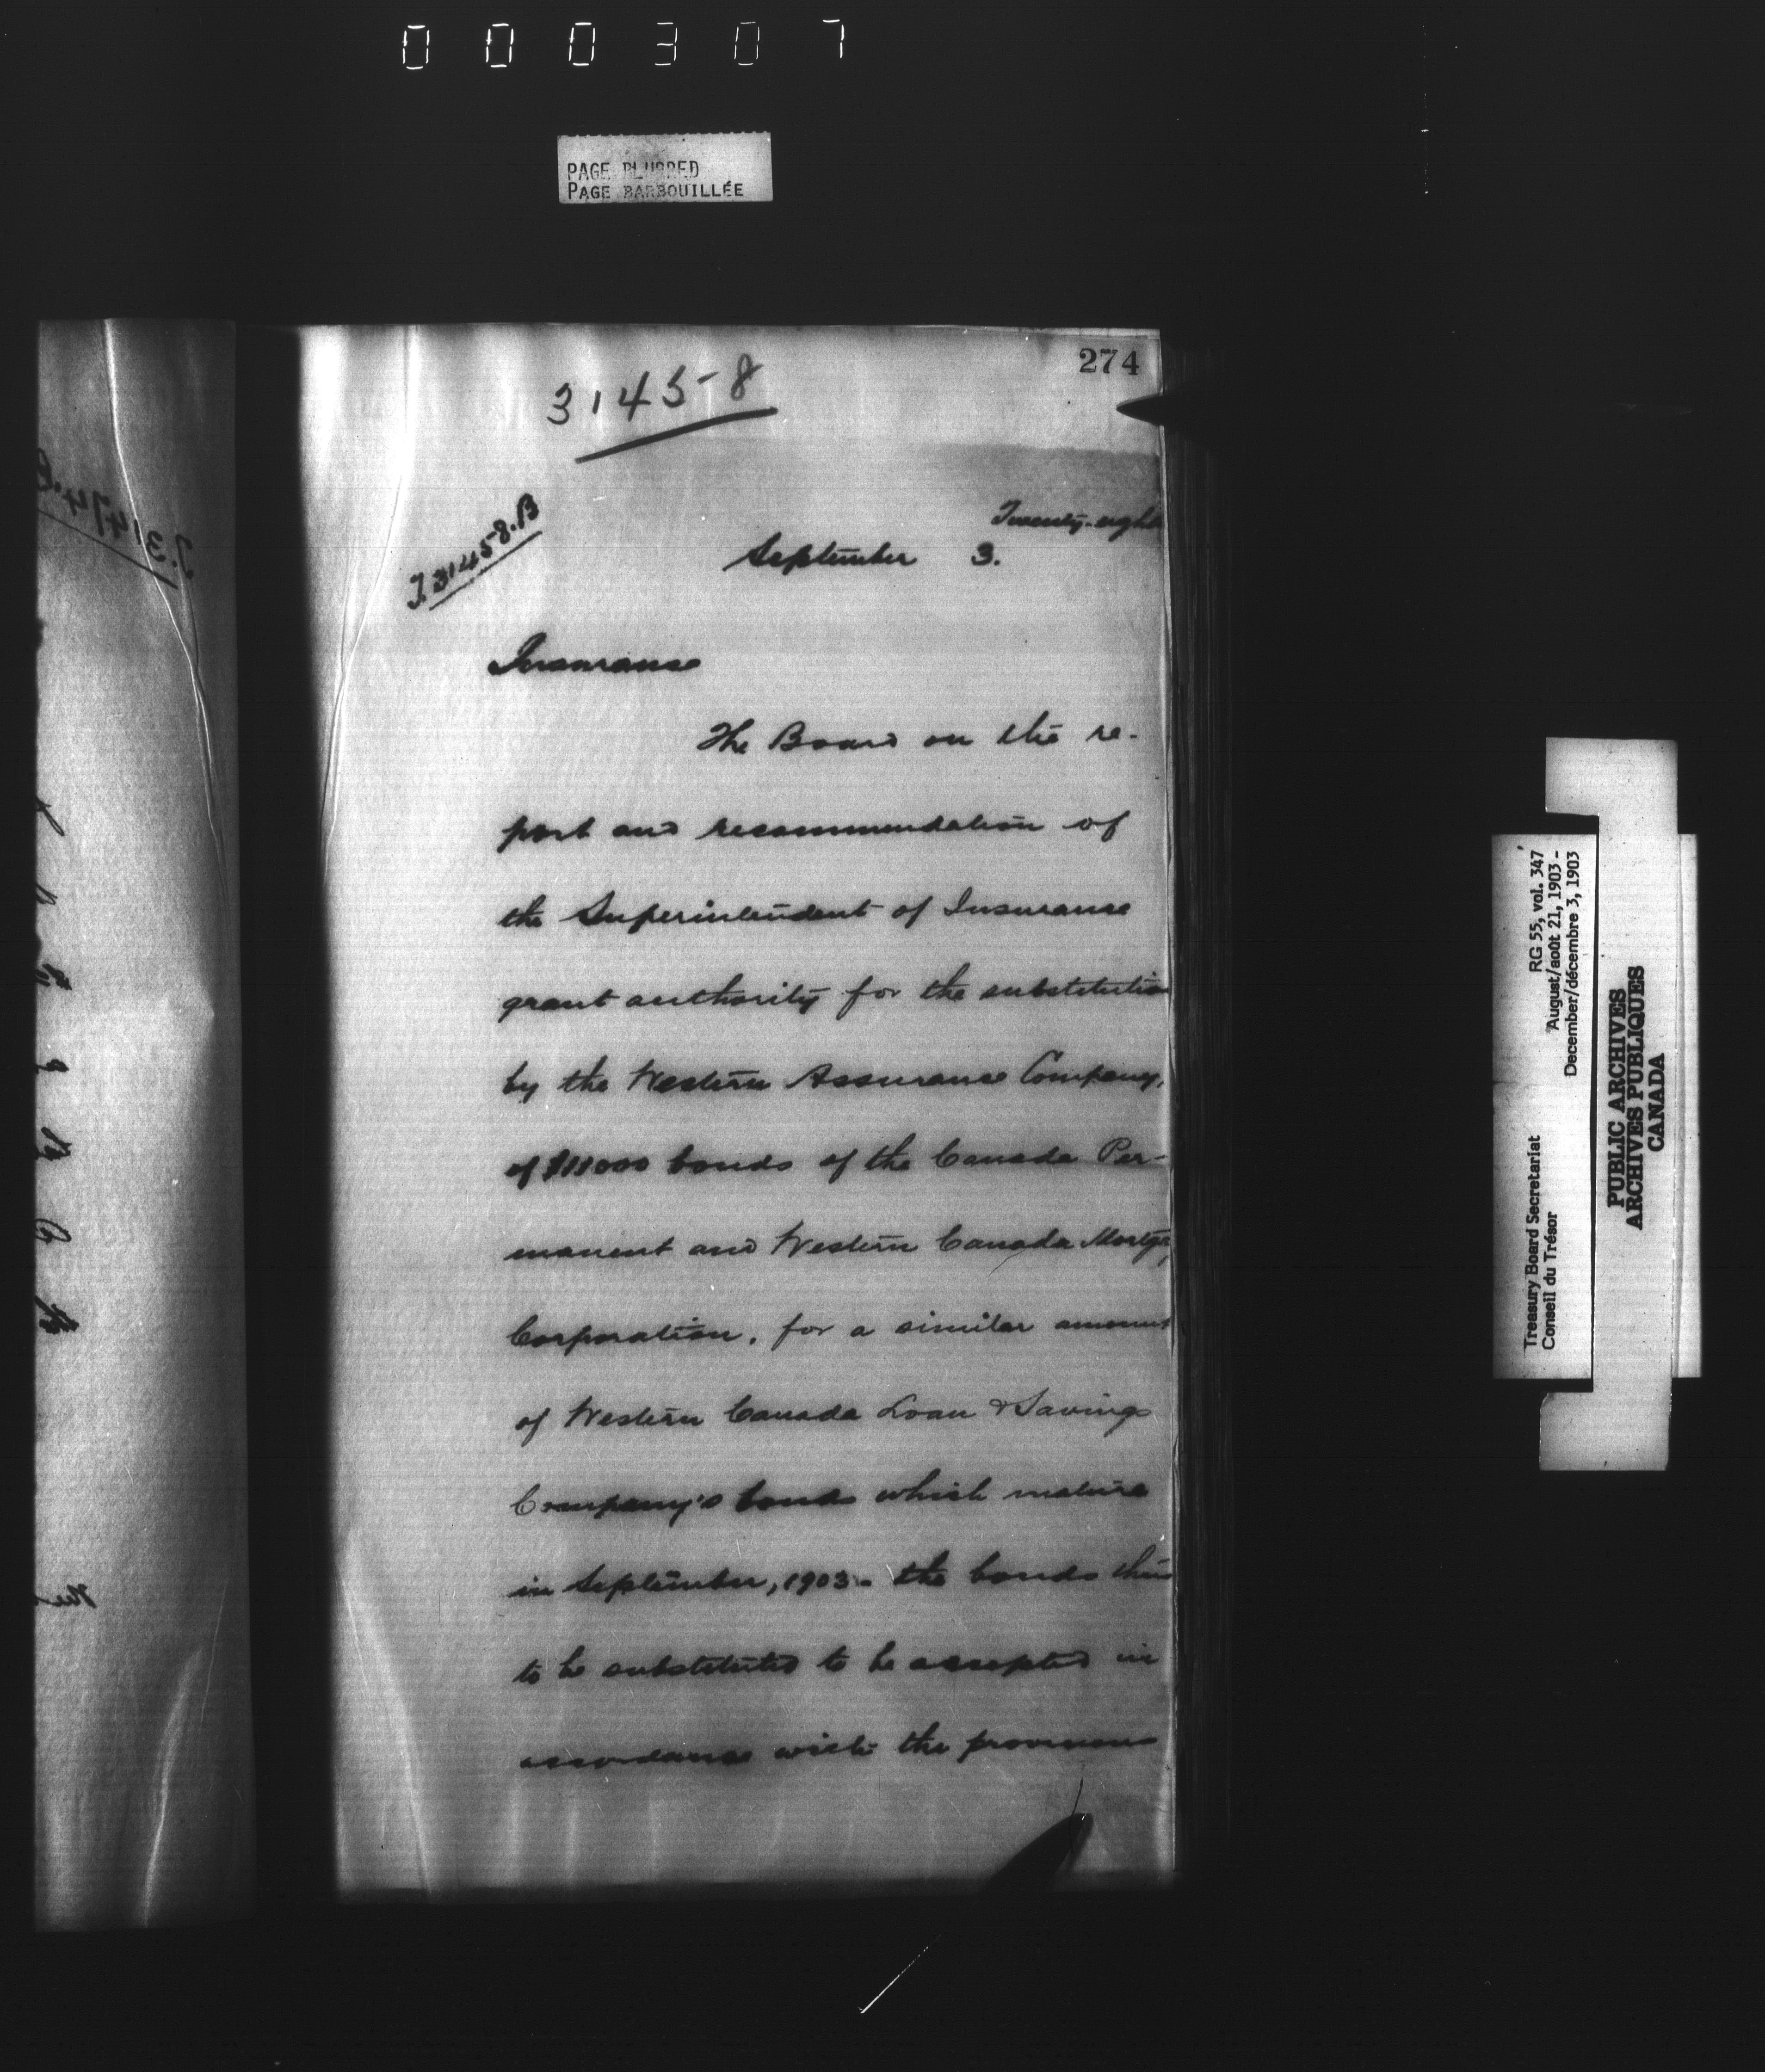 000307
PAGE BLURRED
PAGE BARBOUILLÉE
274
31458
T.31458.B
Twenty-eighth
September 3.
Insurance
The Board on the re-
port and recommendation of
the Superintendent of Insurance
grant authority for the substitution
by the Western Assurance Company,
of bonds of the Canada Per-
manent and Western Canada Mortga
Corporation, for a similar amount
of Western Canada Loan & Savings
Company's bonds which mature
in September, 1903 - the bonds thus
to be substituted to be accepted in
accordance with the provisions
Treasury Board Secretariat RG 55, vol. 347
Conseil du Trésor August/août 21, 1903 -
December/décembre 3, 1903
PUBLIC ARCHIVES
ARCHIVES PUBLIQUES
CANADA